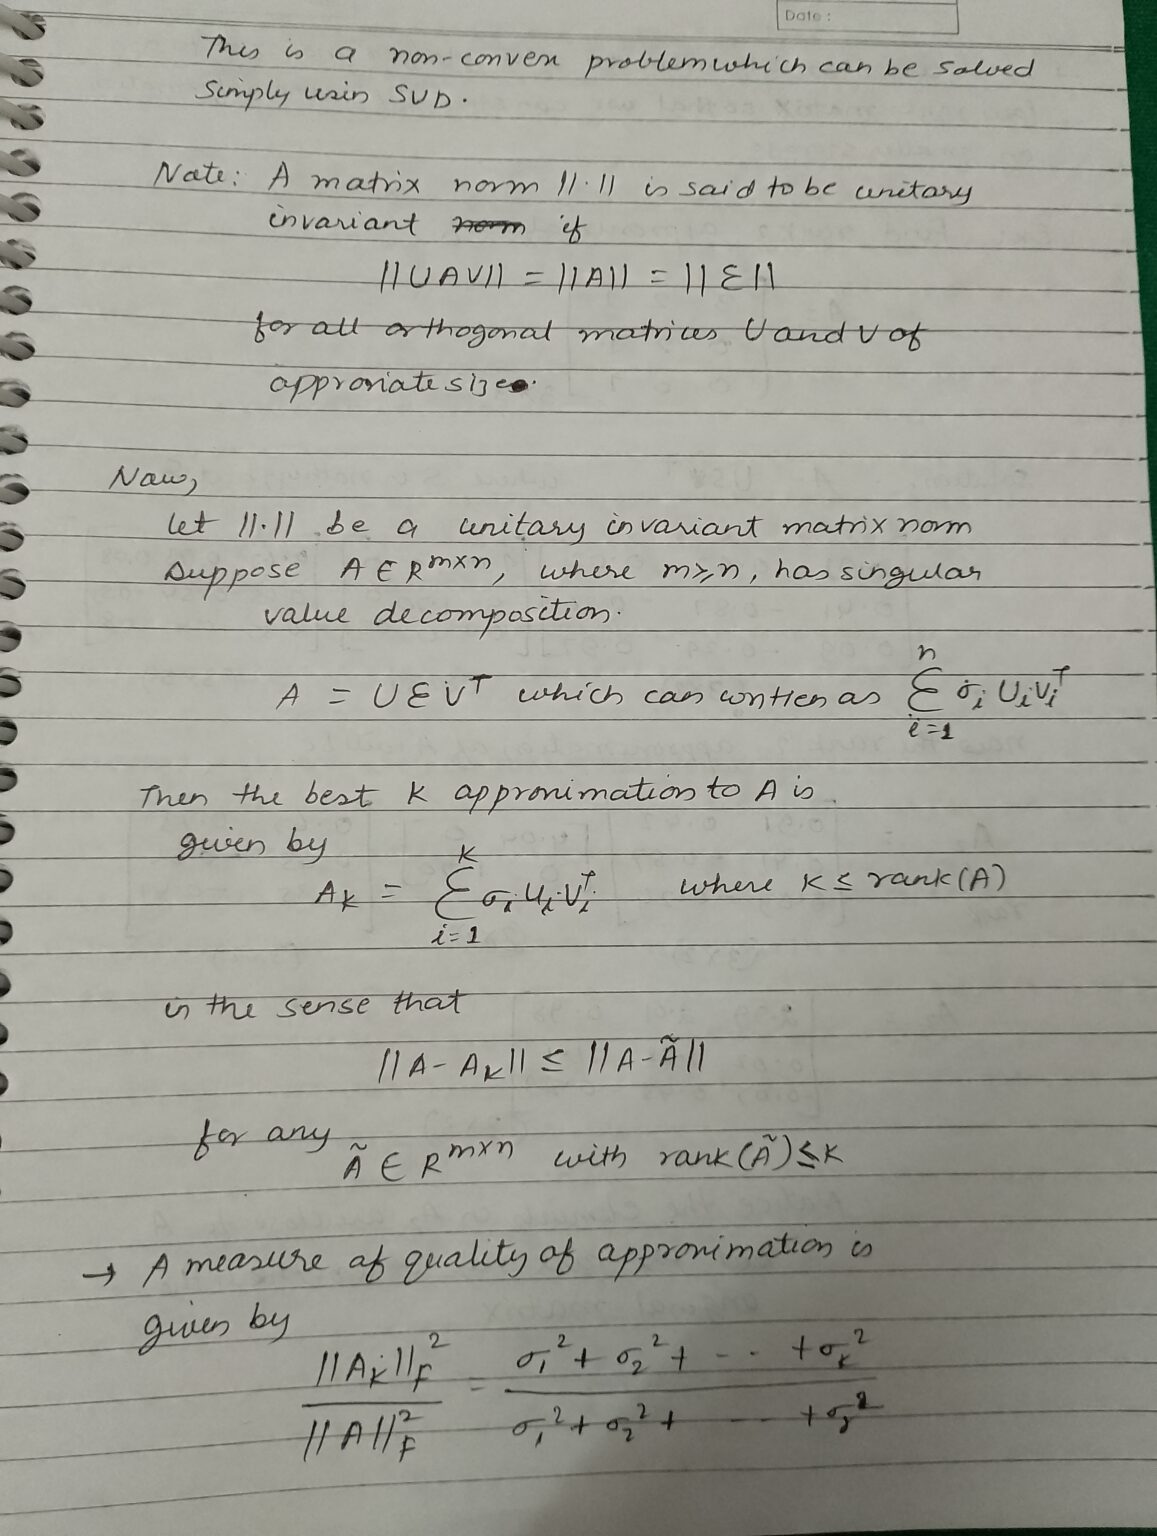 Date:
This is a non-convex problem which can be solved
simply usin SVD.
Note: A matrix norm ||.|| is said to be unitary
invariant norm if
||UAV|| = ||A|| = ||Σ||
for all orthogonal matrices U and V of
approriate size.
Now,
let ||.|| be a unitary invariant matrix norm
Suppose A ∈ R^{m×n}, where m≥n, has singular
value decomposition.
A = UΣV^T which can written as Σ_{i=1}^{n} σ_i U_i V_i^T
Then the best K approximation to A is
given by
A_K = Σ_{i=1}^{K} σ_i U_i V_i^T where K ≤ rank(A)
in the sense that
||A-A_K|| ≤ ||A-Ã||
for any
Ã ∈ R^{m×n} with rank(Ã) ≤ K
→ A measure of quality of approximation is
given by
||A_K||_F^2 / ||A||_F^2 = σ_1^2 + σ_2^2 + -- + σ_K^2 / σ_1^2 + σ_2^2 + --- + σ_r^2